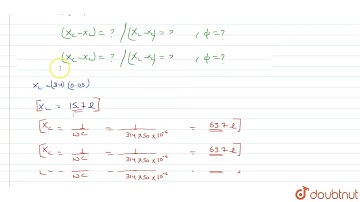 (X_C-X_L) = ? / (X_L-X_C) = ? , φ=?
(X_C-X_L) = ? / (X_L-X_C) = ? , φ=?
X_L = (314) (0.05)
[X_L = 15.7 Ω]
[X_C = 1/ωC = 1/314×50×10⁻⁶ = 63.7 Ω]
[X_C = 1/ωC = 1/314×50×10⁻⁶ = 63.7 Ω]
doubtnut